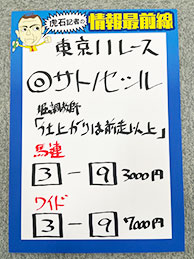 虎石記者の
情報最前線
東京11レース
◎サトノセシル
堀調教師
「仕上がりは前走以上」
馬連
3-9 3000円
ワイド
3-9 7000円